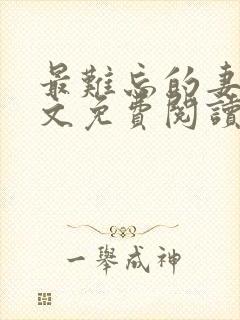 最難忘的妻
文免費閱讀
一舉成神